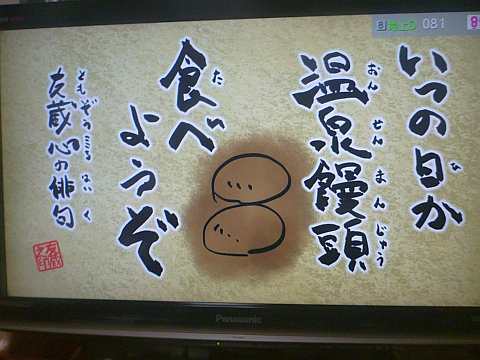 いつの日か
温泉饅頭
おんせんまんじゅう
食べ
ようぞ
友蔵心の俳句
ともぞうこころ はいく
地上D 081
Panasonic